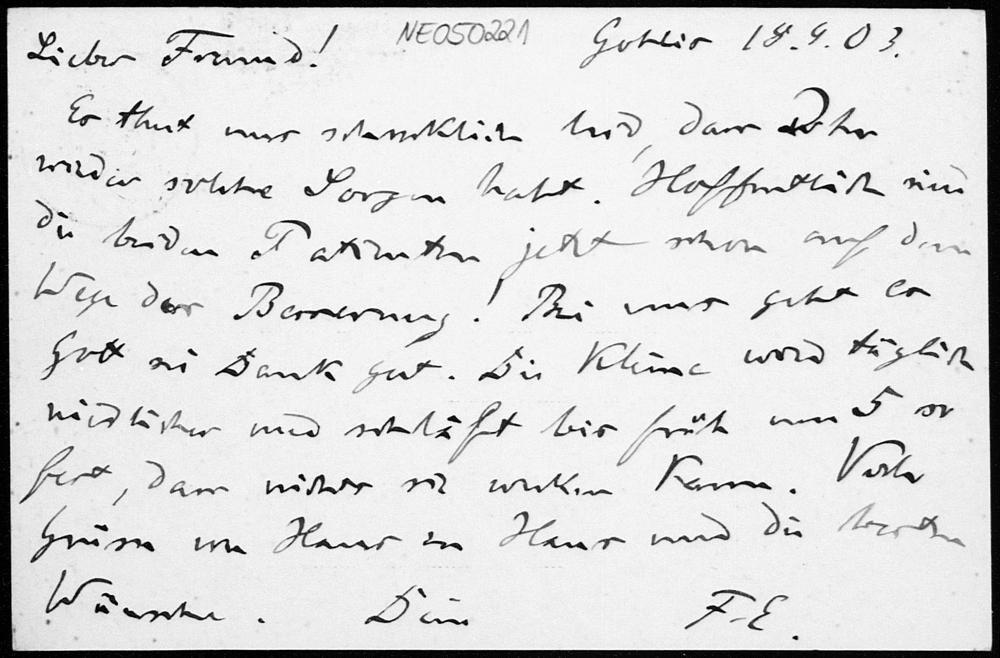 NE050221
Gohlis 18.9.03.
Lieber Freund!
Es thut mir schrecklich leid, dass Ihr
wieder solche Sorgen habt. Hoffentlich sind
die beiden Patienten jetzt schon auf dem
Wege der Besserung! Bei uns geht es
Gott sei Dank gut. Die Kleine wird täglich
niedlicher und schläft bis früh um 5 so
fest, dass nichts sie wecken kann. Viele
Grüsse von Haus zu Haus und die besten
Wünsche. Dein F-E.